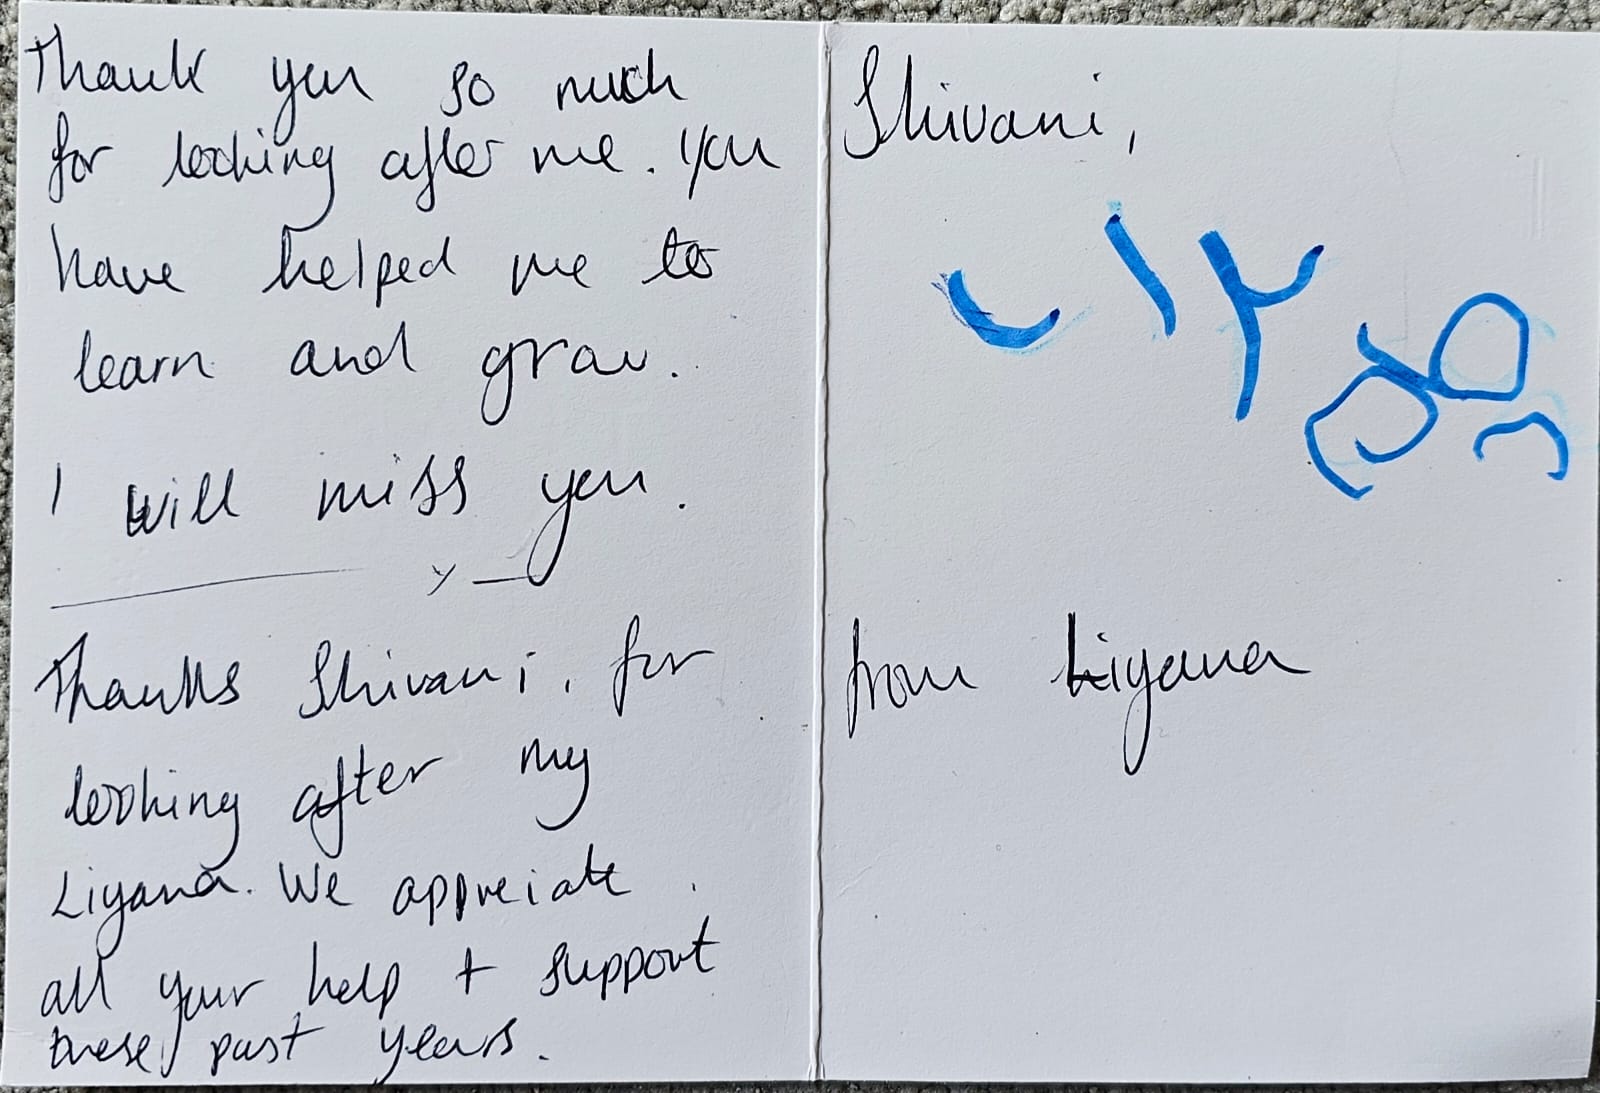 Thank you so much
for looking after me. You
have helped me to
learn and grow.
I will miss you.
Thanks Shivani, for
looking after my
Liyana. We appreiate
all your help + support
these past years.
Shivani,
from Liyana